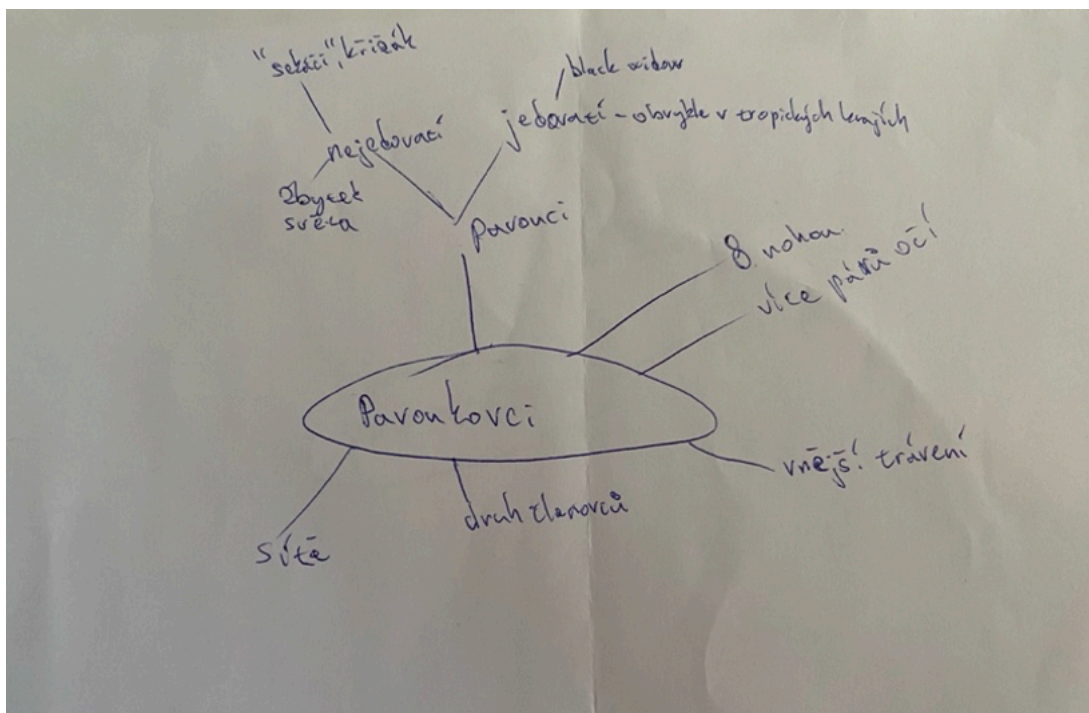 "sekáči", křižák
black widow
jedovatí - obvykle v tropických krajích
nejedovatí
zbytek
světa
Pavouci
8 nohou
více párů očí
Pavoukovci
vnější trávení
druh členovců
sítě